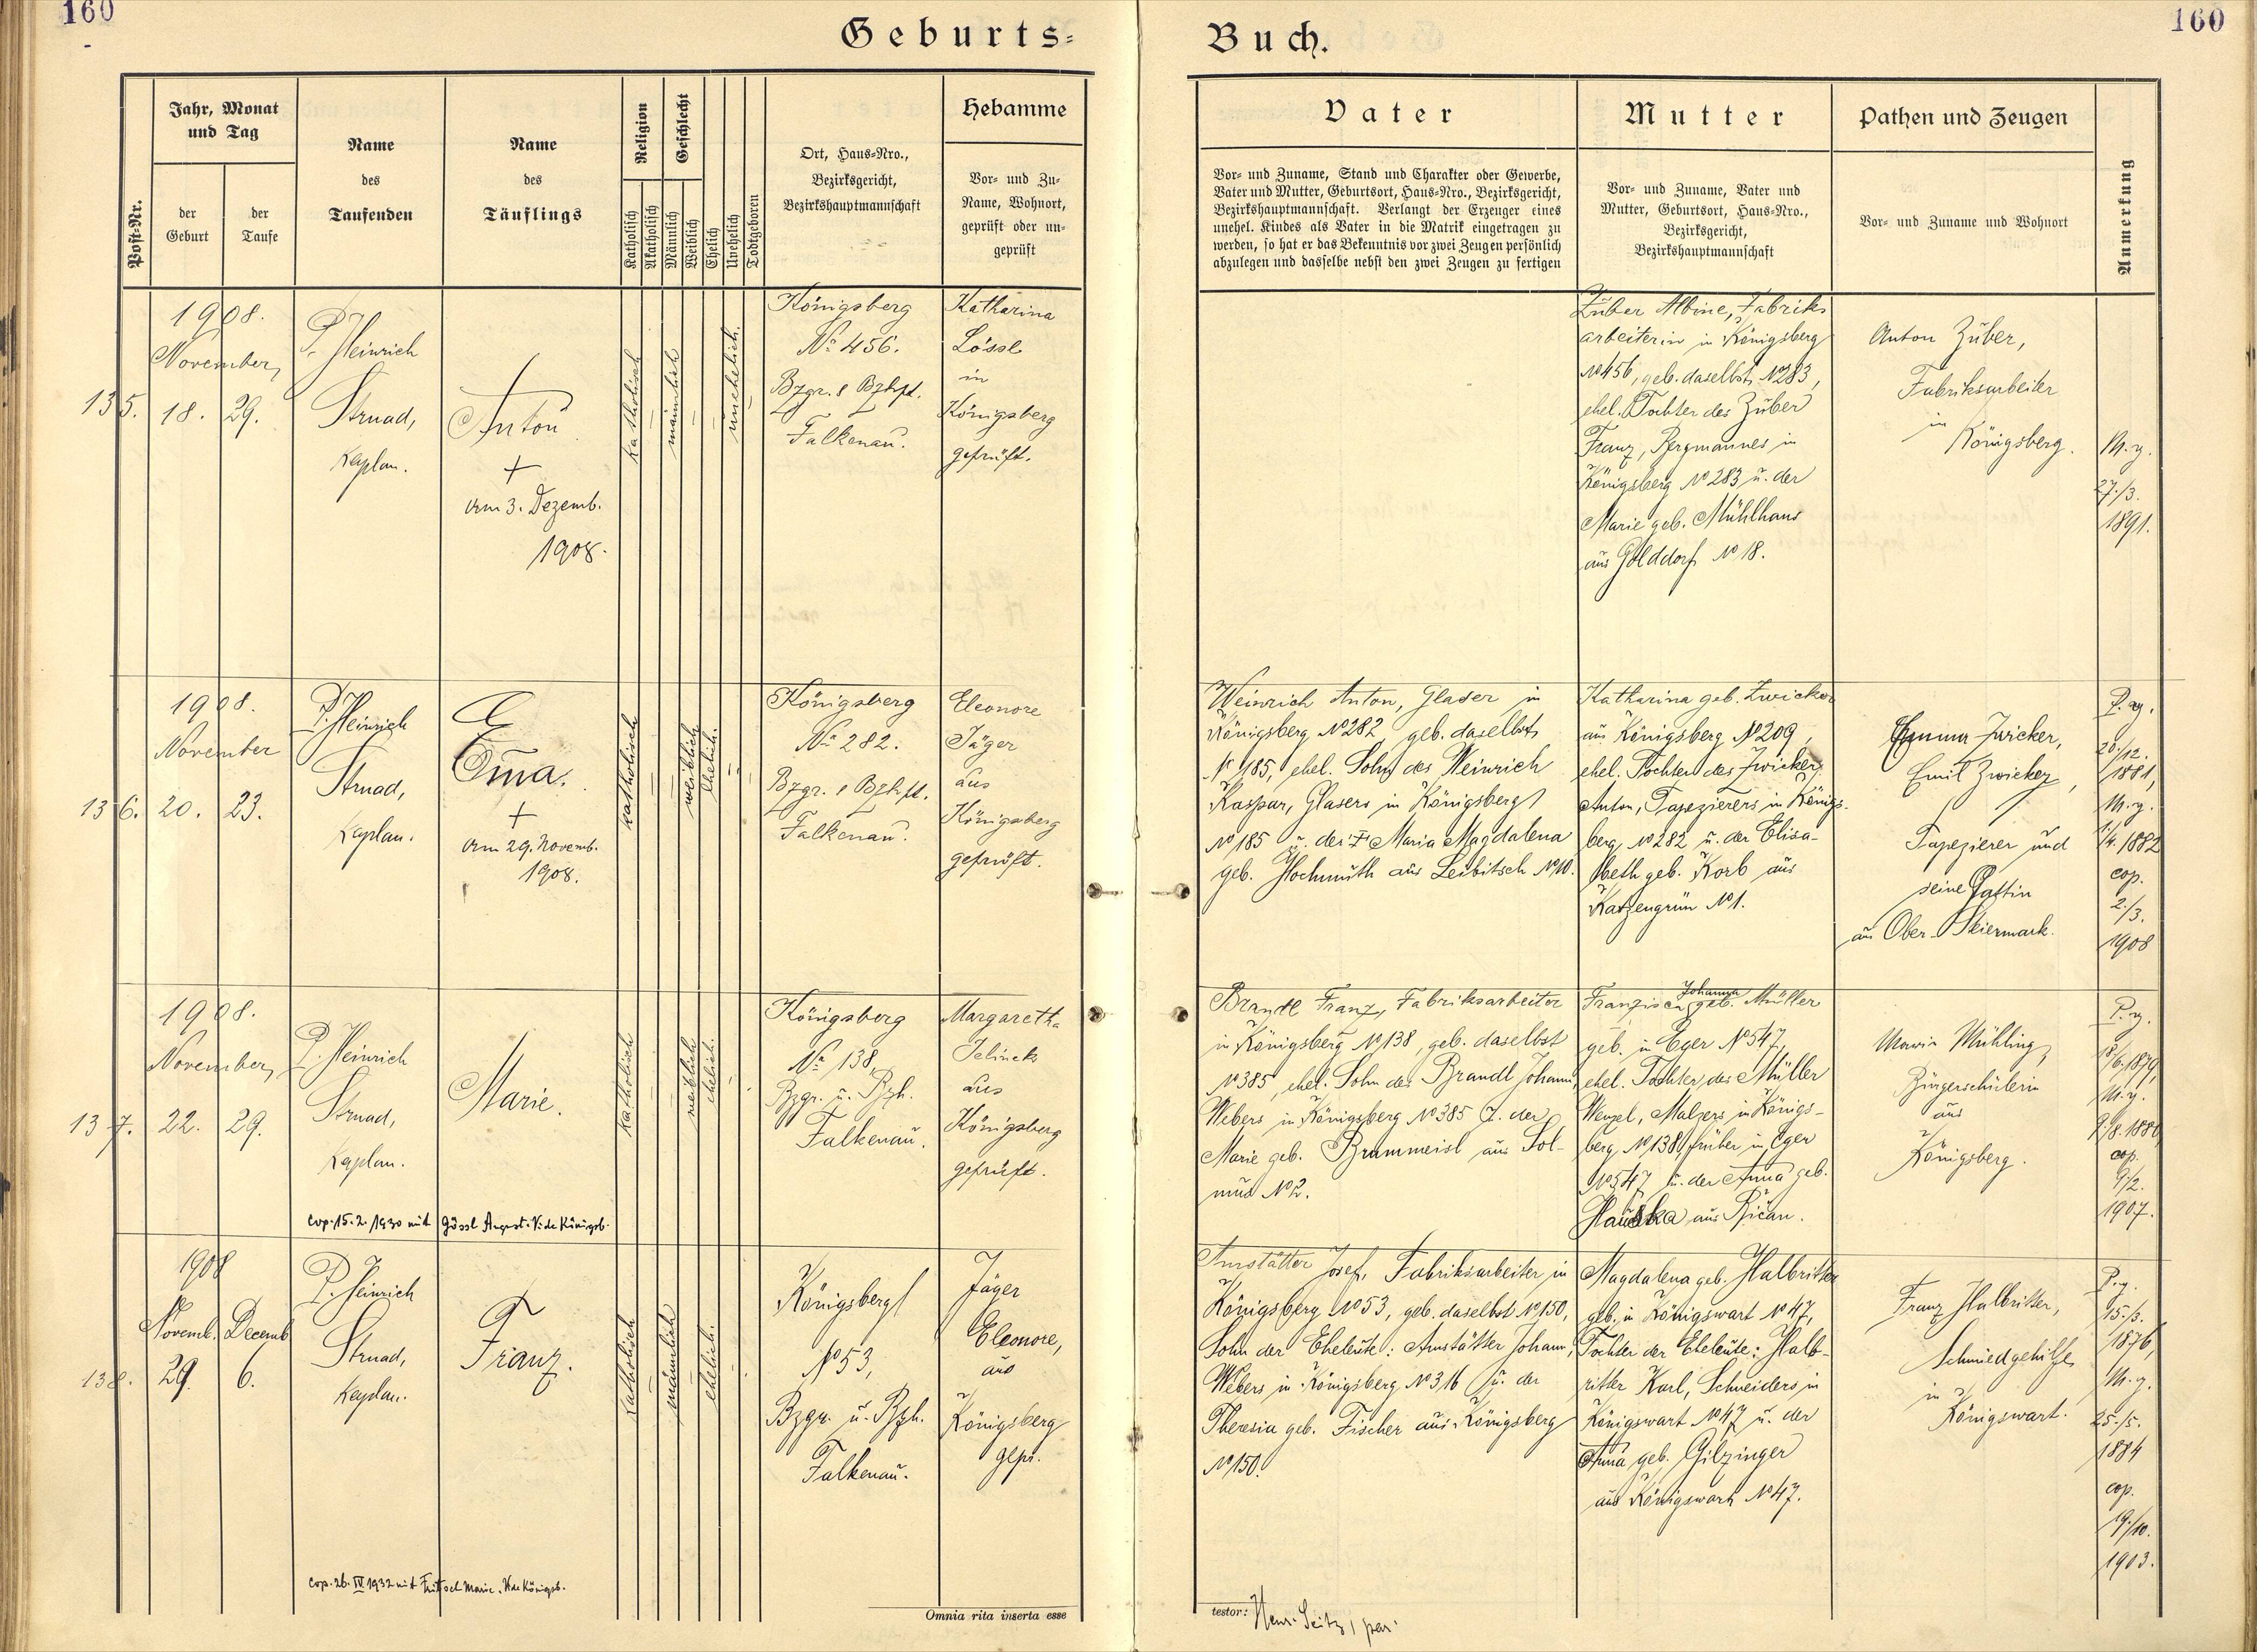 160
160
Geburts=
Buch.
Post-Nr.
Jahr, Monat
und Tag
der
Geburt
der
Taufe
Name
des
Taufenden
Name
des
Täuflings
Religion
Katholisch
Akatholisch
Geschlecht
Männlich
Weiblich
Ehelich
Unehelich
Todtgeboren
Ort, Haus=Nro.,
Bezirksgericht,
Bezirkshauptmannschaft
Hebamme
Vor= und Zu=
Name, Wohnort,
geprüft oder un=
geprüft
Vater
Vor= und Zuname, Stand und Charakter oder Gewerbe,
Vater und Mutter, Geburtsort, Haus=Nro., Bezirksgericht,
Bezirkshauptmannschaft. Verlangt der Erzeuger eines
unehel. Kindes als Vater in die Matrik eingetragen zu
werden, so hat er das Bekenntnis vor zwei Zeugen persönlich
abzulegen und dasselbe nebst den zwei Zeugen zu fertigen
Mutter
Vor= und Zuname, Vater und
Mutter, Geburtsort, Haus=Nro.,
Bezirksgericht,
Bezirkshauptmannschaft
Pathen und Zeugen
Vor= und Zuname und Wohnort
Anmerkung
135.
1908.
November,
18.
29.
P. Heinrich
Strnad,
Kaplan.
Anton
+
am 3. Dezemb.
1908.
katholisch
männlich
unehelich.
Königsberg
No 456.
Bzgr. & Bzhpt.
Falkenau.
Katharina
Lössl
in
Königsberg
geprüft.
Züber Albine, Fabriks
arbeiterin in Königsberg
No 456, geb. daselbst No 283,
ehel. Tochter des Züber
Franz, Bergmannes in
Königsberg No 283 u. der
Marie geb. Mühlhans
aus Golddorf No 18.
Anton Züber,
Fabriksarbeiter
in
Königsberg.
M. g.
27./3.
1891.
136.
1908.
November
20.
23.
P. Heinrich
Strnad,
Kaplan.
Em̄a.
+
am 29. Novemb.
1908.
katholisch
weiblich
ehelich.
Königsberg
No 282.
Bzgr. & Bzhpt.
Falkenau.
Eleonore
Jäger
aus
Königsberg
geprüft.
Weinrich Anton, Glaser in
Königsberg No 282 geb. daselbst
No 185, ehel. Sohn des Weinrich
Kaspar, Glasers in Königsberg
No 185 u. der + Maria Magdalena
geb. Hochmuth aus Leibitsch No 10.
Katharina geb. Zwicker
aus Königsberg No 209,
ehel. Tochter des Zwicker
Anton, Tapezierers in Königs-
berg No 282 u. der Elisa-
beth geb. Korb aus
Katzengrün No 1.
Emma Zwicker,
Emil Zwicker,
Tapezierer und
seine Gattin
aus Ober-Steiermark.
P. g.
20./12.
1881,
M. g.
1/4. 1882
cop.
2./3.
1908
137.
1908.
November,
22.
29.
P. Heinrich
Strnad,
Kaplan.
Marie.
cop. 15. 2. 1930 mit Gössl August. V. de Königsb.
katholisch
weiblich
ehelich.
Königsberg
No 138,
Bzgr. u. Bzh.
Falkenau.
Margaretha
Jelinek
aus
Königsberg
geprüft.
Brandl Franz, Fabriksarbeiter
in Königsberg No 138, geb. daselbst
No 385, ehel. Sohn des Brandl Johann,
Webers in Königsberg No 385 u. der
Marie geb. Brummeisl aus Sol-
mus No 2.
Johanna
Franziska geb. Müller
geb. in Eger No 547,
ehel. Tochter des Müller
Wenzel, Malzers in Königs-
berg No 138, früher in Eger
No 547 u. der Anna geb.
Hauska aus Řičan.
Maria Mühling,
Bürgerschülerin
aus
Königsberg.
P. g.
18/6. 1879,
M. g.
cop.
9/2.
1907.
138.
1908
Novemb.
Decemb
29.
6.
P. Heinrich
Strnad,
Kaplan.
Franz.
cop. 26. IV 1932 mit Fritsch Marie. V. de Königsb.
katholisch
männlich
ehelich.
Königsberg
No 53,
Bzgr. u. Bzh.
Falkenau.
Jäger
Eleonore,
aus
Königsberg
gepr.
Amstätter Josef, Fabriksarbeiter in
Königsberg No 53, geb. daselbst No 150,
Sohn der Eheleute: Amstätter Johann,
Webers in Königsberg No 316 u. der
Theresia geb. Fischer aus Königsberg
No 150.
Magdalena geb. Halbritter
geb. in Königswart No 47,
Tochter der Eheleute: Halb-
ritter Karl, Schneiders in
Königswart No 47 u. der
Anna geb. Gilzinger
aus Königswart No 47.
Franz Halbritter,
Schmiedgehilfe
in
Königswart.
P. g.
15./3.
1876,
M. g.
25./5.
1884
cop.
19./10.
1903.
Omnia rita inserta esse
testor: Henr. Seitz, par.